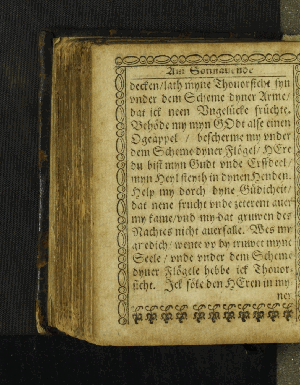 Am Sonnavende
decken/ lath myne Thovorsicht syn
vnder dem Scheme dyner Arme/
dat ick neen Vngelücke früchte.
Behöde my myn GOdt alse einen
Ogeappel / bescherme my vnder
dem Scheme dyner Flögel/ HEre
du bist myn Gudt vnde Erffdeel/
myn Heyl steyth in dynen Henden.
Help my dorch dyne Güdicheit/
dat nene frucht vnde zeterent auer
my kame/ vnd my dat gruwen des
Nachtes nicht auerfalle. Wes my
gnedich/ wente vp dy truwet myne
Seele/ vnde vnder dem Scheme
dyner Flögele hebbe ick Thovor-
sicht. Ick söke den HEren in my-
ner